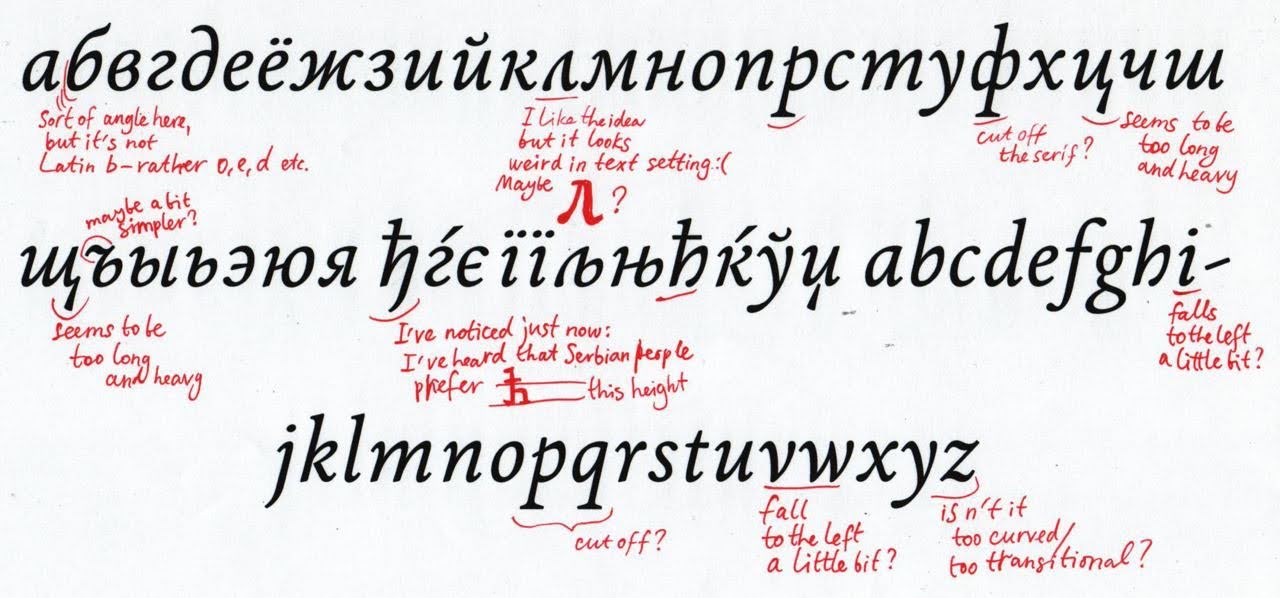 абвгдеёжзийклмнопрстуфхцчш
Sort of angle here,
but it's not
Latin b – rather o, e, d etc.
I like the idea
but it looks
weird in text setting :(
Maybe л ?
cut off
the serif?
seems to be
too long
and heavy
maybe a bit
simpler?
щъыьэюя ђѓєїїљњћќўџ abcdefghi-
seems to be
too long
and heavy
I've noticed just now:
I've heard that Serbian people
prefer ћ this height
falls
to the left
a little bit?
jklmnopqrstuvwxyz
cut off?
fall
to the left
a little bit?
isn't it
too curved/
too transitional?